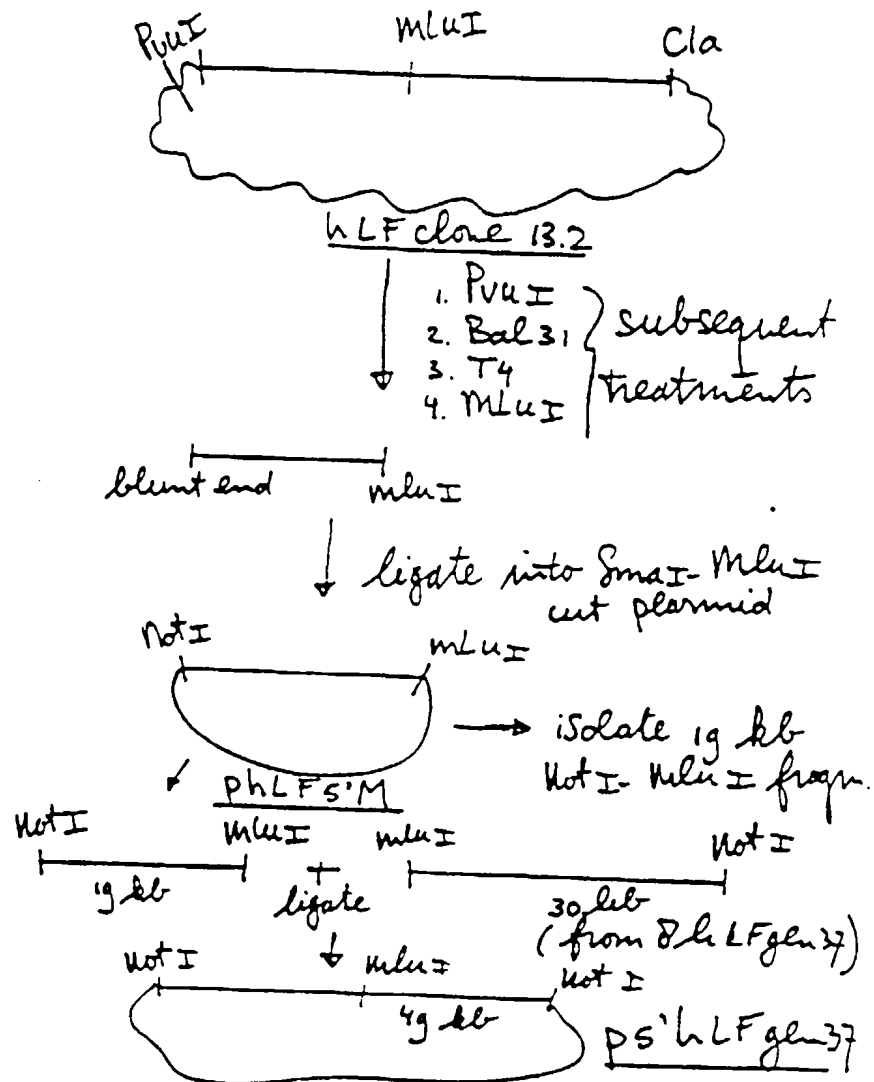 PvuI
mLuI
Cla
hLF clone 13.2
1. PvuI
2. Bal31
3. T4
4. MLuI
subsequent
treatments
blunt end
mluI
ligate into SmaI-MluI
cut plasmid
NotI
mLuI
isolate 19 kb
NotI-MluI fragm.
phLF5'M
NotI
MluI
mluI
NotI
19 kb
+
ligate
30 kb
(from 8hLFgen37)
NotI
mluI
NotI
49 kb
p5'hLFgen37